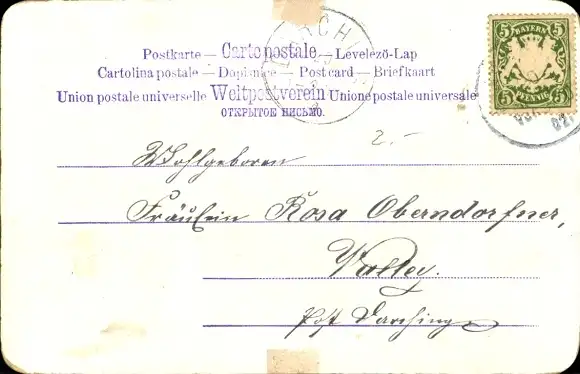 BAYERN
5 5
PFENNIG
Postkarte — Carte postale — Levelező-Lap
Cartolina postale — Dopisnice — Post card — Briefkaart
Union postale universelle Weltpostverein Unione postale universale
ОТКРЫТОЕ ПИСЬМО.
2.-
Wohlgeboren
Fräulein Rosa Oberndorfner,
Valley.
Post Darching